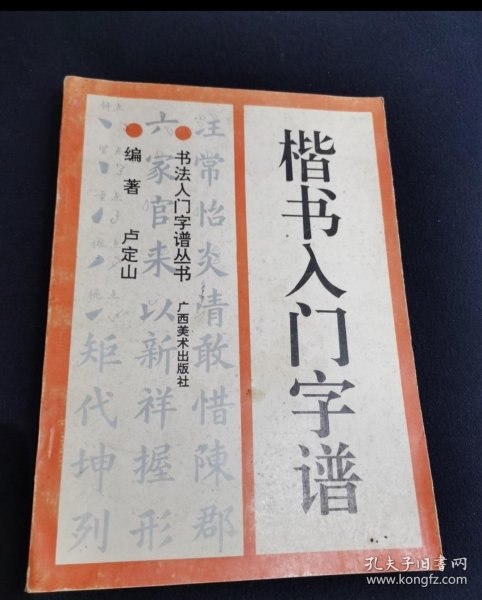 楷书入门字谱
书法入门字谱丛书 广西美术出版社
编著 卢定山
注常怡炎清敢惜陳郡
六家官来以新祥握形
矩代坤列
孔夫子旧书网
www.kongfz.com